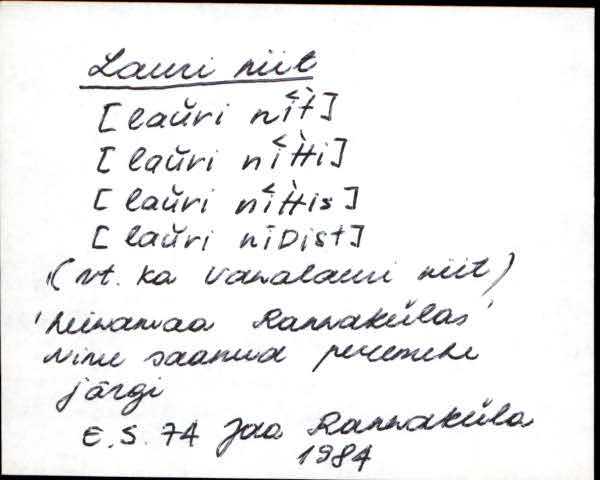 Lauri niit
[laŭri nī̀t]
[laŭri nī̀tti]
[laŭri nī̀ttis]
[laŭri nīDist]
(vt. ka Vanalauri niit)
'heinamaa Rannakülas'
Nime saanud peremehe
järgi
E. S. 74 Jaa Rannaküla
1984